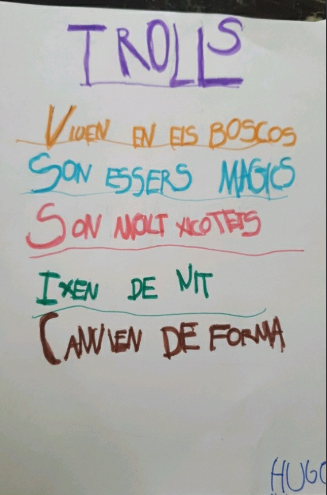 TROLLS
VIUEN EN ELS BOSCOS
SON ESSERS MAGICS
SON MOLT XICOTETS
IXEN DE NIT
CANVIEN DE FORMA
HUGO